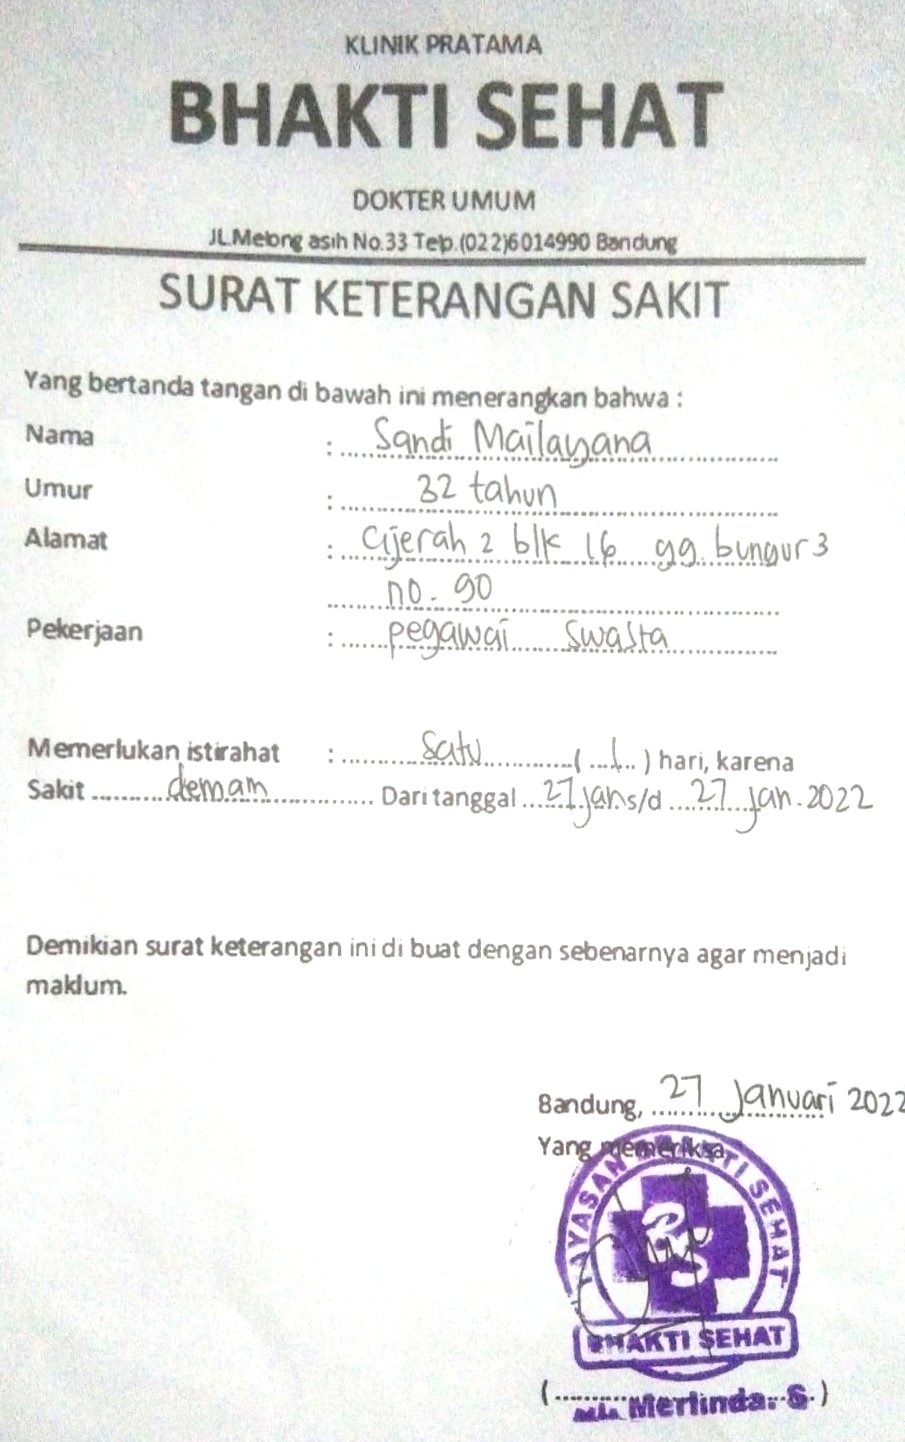 KLINIK PRATAMA
BHAKTI SEHAT
DOKTER UMUM
JL.Melong asih No.33 Telp.(022)6014990 Bandung
SURAT KETERANGAN SAKIT
Yang bertanda tangan di bawah ini menerangkan bahwa :
Nama : Sandi Mailayana
Umur : 32 tahun
Alamat : Cijerah 2 blk 16 gg. bungur 3
no. 90
Pekerjaan : pegawai swasta
Memerlukan istirahat : Satu ( 1 ) hari, karena
Sakit demam Dari tanggal 27 jan s/d 27 jan. 2022
Demikian surat keterangan ini di buat dengan sebenarnya agar menjadi
maklum.
Bandung, 27 Januari 2022
Yang memeriksa
YAYASAN BHAKTI SEHAT
BHAKTI SEHAT
( Merlinda. S. )